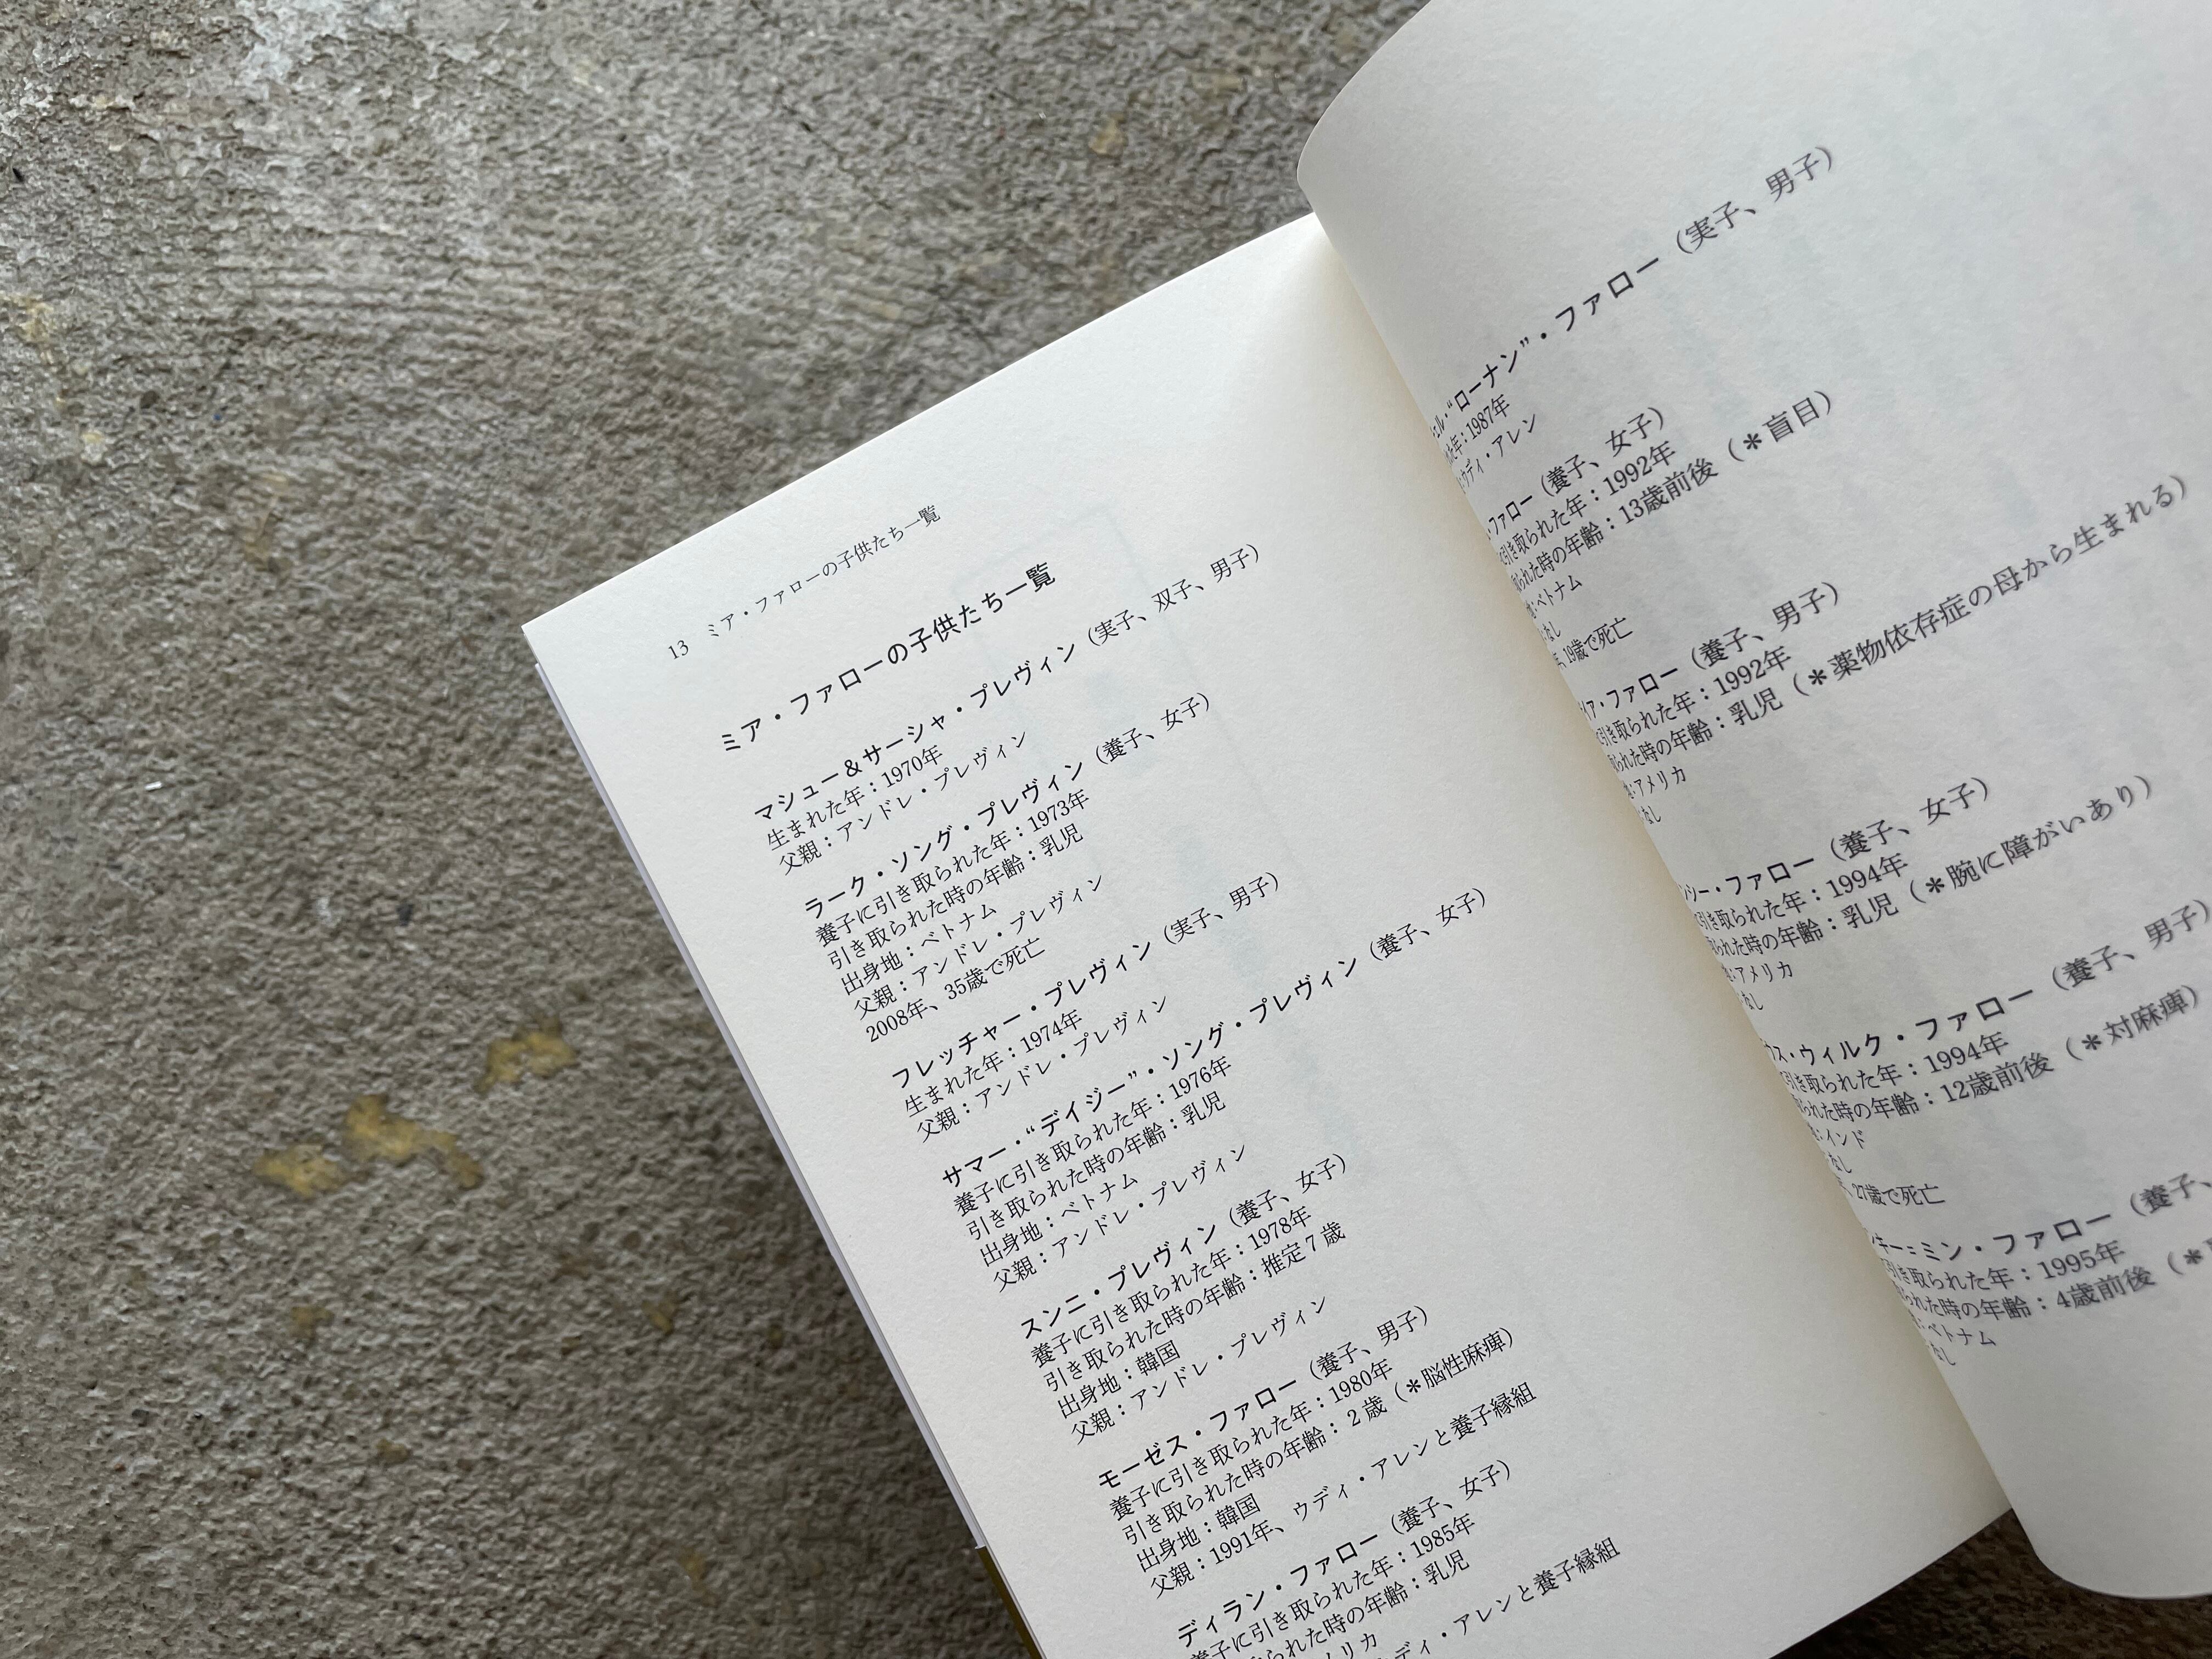 13 ミア・ファローの子供たち一覧
ミア・ファローの子供たち一覧
マシュー＆サーシャ・プレヴィン（実子、双子、男子）
生まれた年：1970年
父親：アンドレ・プレヴィン
ラーク・ソング・プレヴィン（養子、女子）
養子に引き取られた年：1973年
引き取られた時の年齢：乳児
出身地：ベトナム
父親：アンドレ・プレヴィン
2008年、35歳で死亡
フレッチャー・プレヴィン（実子、男子）
生まれた年：1974年
父親：アンドレ・プレヴィン
サマー・“デイジー”・ソング・プレヴィン（養子、女子）
養子に引き取られた年：1976年
引き取られた時の年齢：乳児
出身地：ベトナム
父親：アンドレ・プレヴィン
スンニ・プレヴィン（養子、女子）
養子に引き取られた年：1978年
引き取られた時の年齢：推定７歳
出身地：韓国
父親：アンドレ・プレヴィン
モーゼス・ファロー（養子、男子）
養子に引き取られた年：1980年
引き取られた時の年齢：２歳（＊脳性麻痺）
出身地：韓国
父親：1991年、ウディ・アレンと養子縁組
ディラン・ファロー（養子、女子）
養子に引き取られた年：1985年
られた時の年齢：乳児
メリカ
ディ・アレンと養子縁組
“ローナン”・ファロー（実子、男子）
年：1987年
ウディ・アレン
ファロー（養子、女子）
引き取られた年：1992年
られた時の年齢：13歳前後（＊盲目）
ベトナム
なし
19歳で死亡
ア・ファロー（養子、男子）
引き取られた年：1992年
られた時の年齢：乳児（＊薬物依存症の母から生まれる）
アメリカ
なし
シー・ファロー（養子、女子）
引き取られた年：1994年
られた時の年齢：乳児（＊腕に障がいあり）
アメリカ
なし
ウス・ウィルク・ファロー（養子、男子）
引き取られた年：1994年
られた時の年齢：12歳前後（＊対麻痺）
インド
なし
27歳で死亡
キー＝ミン・ファロー（養子、
引き取られた年：1995年
られた時の年齢：4歳前後（＊
ベトナム
なし